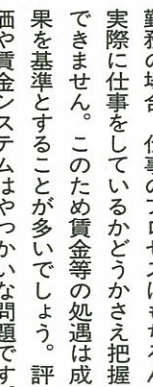 勤務の場合、仕事のプロセスはもちろん
実際に仕事をしているかどうかさえ把握
できません。このため賃金等の処遇は成
果を基準とすることが多いでしょう。評
価や賃金システムはやっかいな問題です。